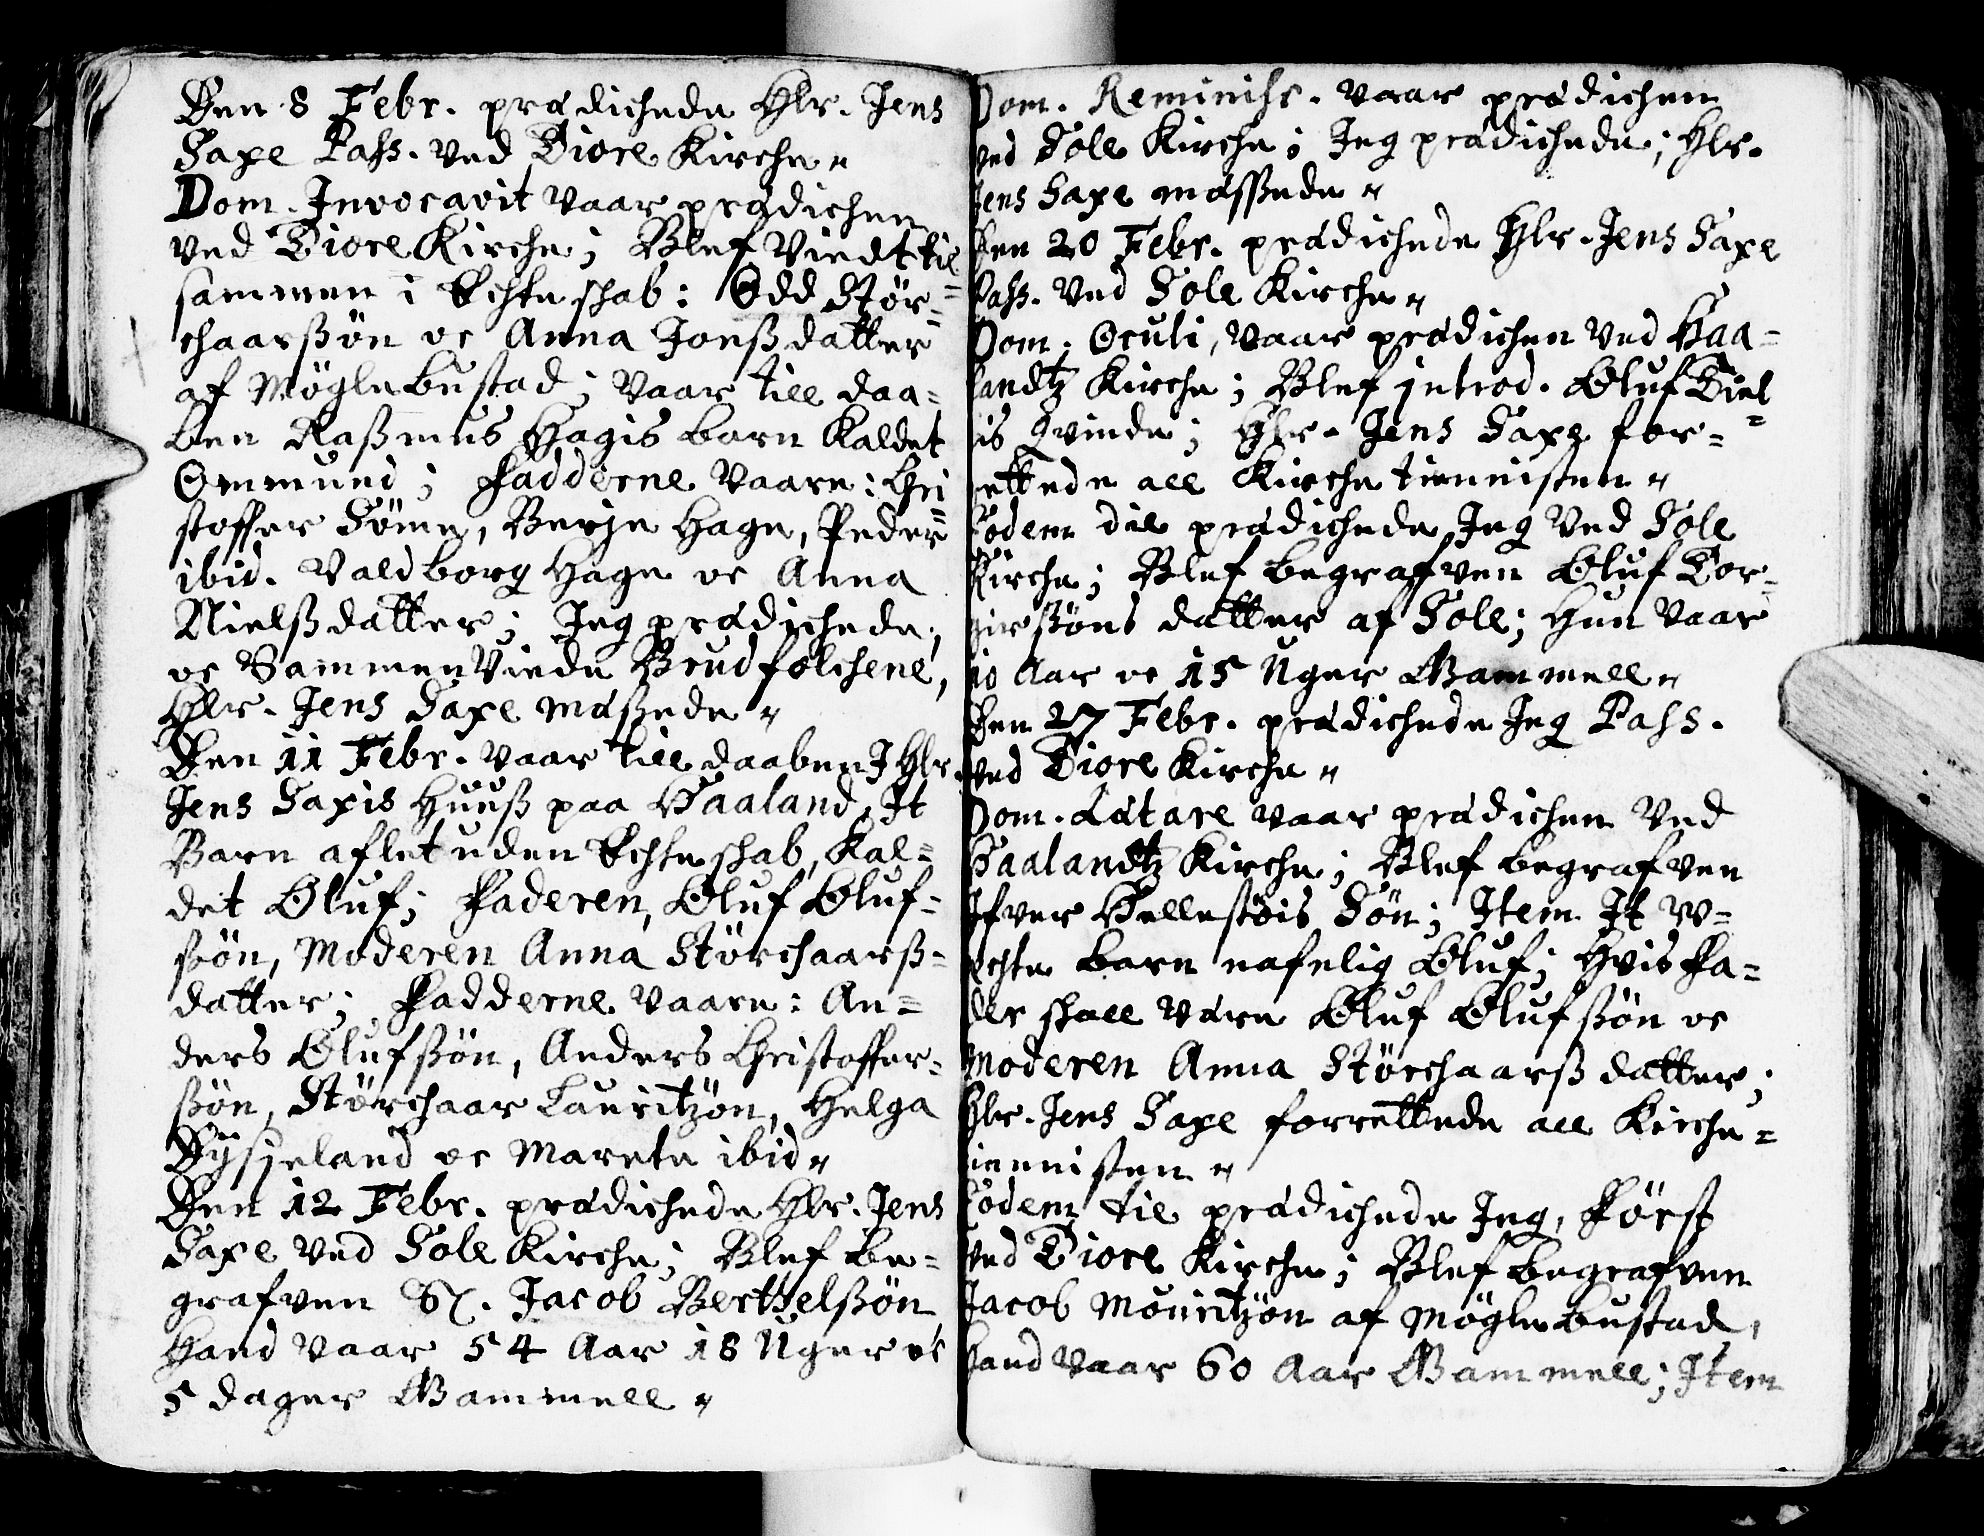 Den 8 Febr. prædichede Hlr. Jens
Saxe Pass. ved Tiore Kirche
Dom. Invocavit vaar prædichen
ved Tiore Kirche; Blef Viedt til
sammen i Echteschab: Odd Stör-
chaarßön oc Anna Jonßdatter
af Möglebustad; vaar till daa-
ben Raßmus Hagis barn kaldet
Ommund; Fadderne vaare: Chri-
stoffer Söme, Berje Hage, Peder
ibid. Valdborg Hage oc Anna
Nielßdatter; Jeg prædichede,
oc Sammenviede Brudfolchene,
Hlr. Jens Saxe mæßede
Den 11 Febr. vaar till daaben J Hlr.
Jens Saxis Huuß paa Haaland, It
Barn aflet uden Echteschab, Kal-
det Oluf; Faderen, Oluf Oluf-
ßön, Moderen Anna Störchaarß-
datter; Fadderne vaare: An-
ders Olufßön, Anders Christoffer-
ßön, Störchaar Lauritzön, Helga
Dysjeland oc Marete ibid
Den 12 Febr. prædichede Hlr. Jens
Saxe ved Sole Kirche; Blef be-
grafven Sl. Jacob Berthelßön
Hand vaar 54 Aar 18 Uger oc
5 dager Gammell
Dom. Reminisc. vaar prædichen
ved Sole Kirche; Jeg prædichede; Hlr.
Jens Saxe mæssede
Den 20 Febr. prædichede Hlr. Jens Saxe
Pass. ved Sole Kirche
Dom. Oculi, vaar prædichen ved Haa-
landtz Kirche; Blef introd. Oluf Tiel-
is Qvinde; Hlr. Jens Saxe for-
rettede all Kirchetiennisten
Eodem die prædichede Jeg ved Sole
Kirche; Blef begrafven Oluf Tor-
girßöns datter af Sole; Hun vaar
10 Aar oc 15 Uger Gammell
Den 27 Febr. prædichede Jeg Pass.
ved Tiore Kirche
Dom. Lætare vaar prædichen ved
Haalandtz Kirche; Blef begrafven
Ifver Hellestöis Sön; Item It w-
echte barn nafnlig Oluf; Hvis Fa-
der skall være Oluf Olufßön oc
Moderen Anna Störchaarßdatter;
Hlr. Jens Saxe forrettede all Kirche-
tiennisten
Eodem die prædichede Jeg, Först
ved Tiore Kirche; Blef begrafven
Jacob Mouritzön af Möglebustad,
Hand vaar 60 Aar Gammell; Item